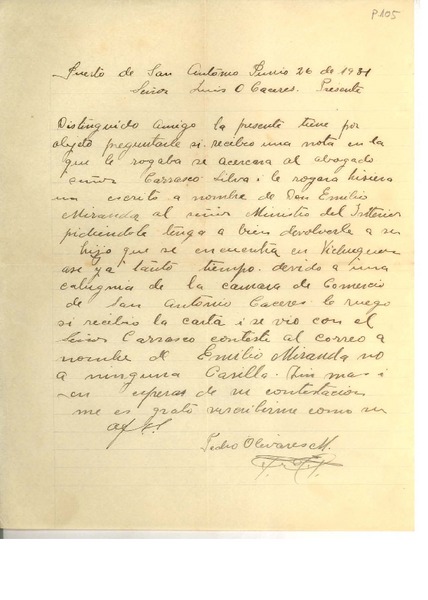 P.105
Puerto de San Antonio Junio 26 de 1931
Señor Luis O Caceres. Presente
Distinguido amigo la presente tiene por
objeto preguntarle si recibio una nota en la
que le rogaba se acercara al abogado
señor Carrasco Silva i le rogara hisiera
un escrito a nombre de Don Emilio
Miranda al señor Ministro del Interior
pidiendole tenga a bien devolverle a su
hijo que se encuentra en Vichuquen
ase ya tanto tiempo. devido a una
calugnia de la camara de Comercio
de San Antonio Caceres le ruego
si recibio la carta i se vio con el
Señor Carrasco conteste al correo a
nombre de Emilio Miranda no
a ninguna Casilla. Sin mas i
en esperas de su contestacion
me es grato suscribirme como su
Pedro Olivares M.